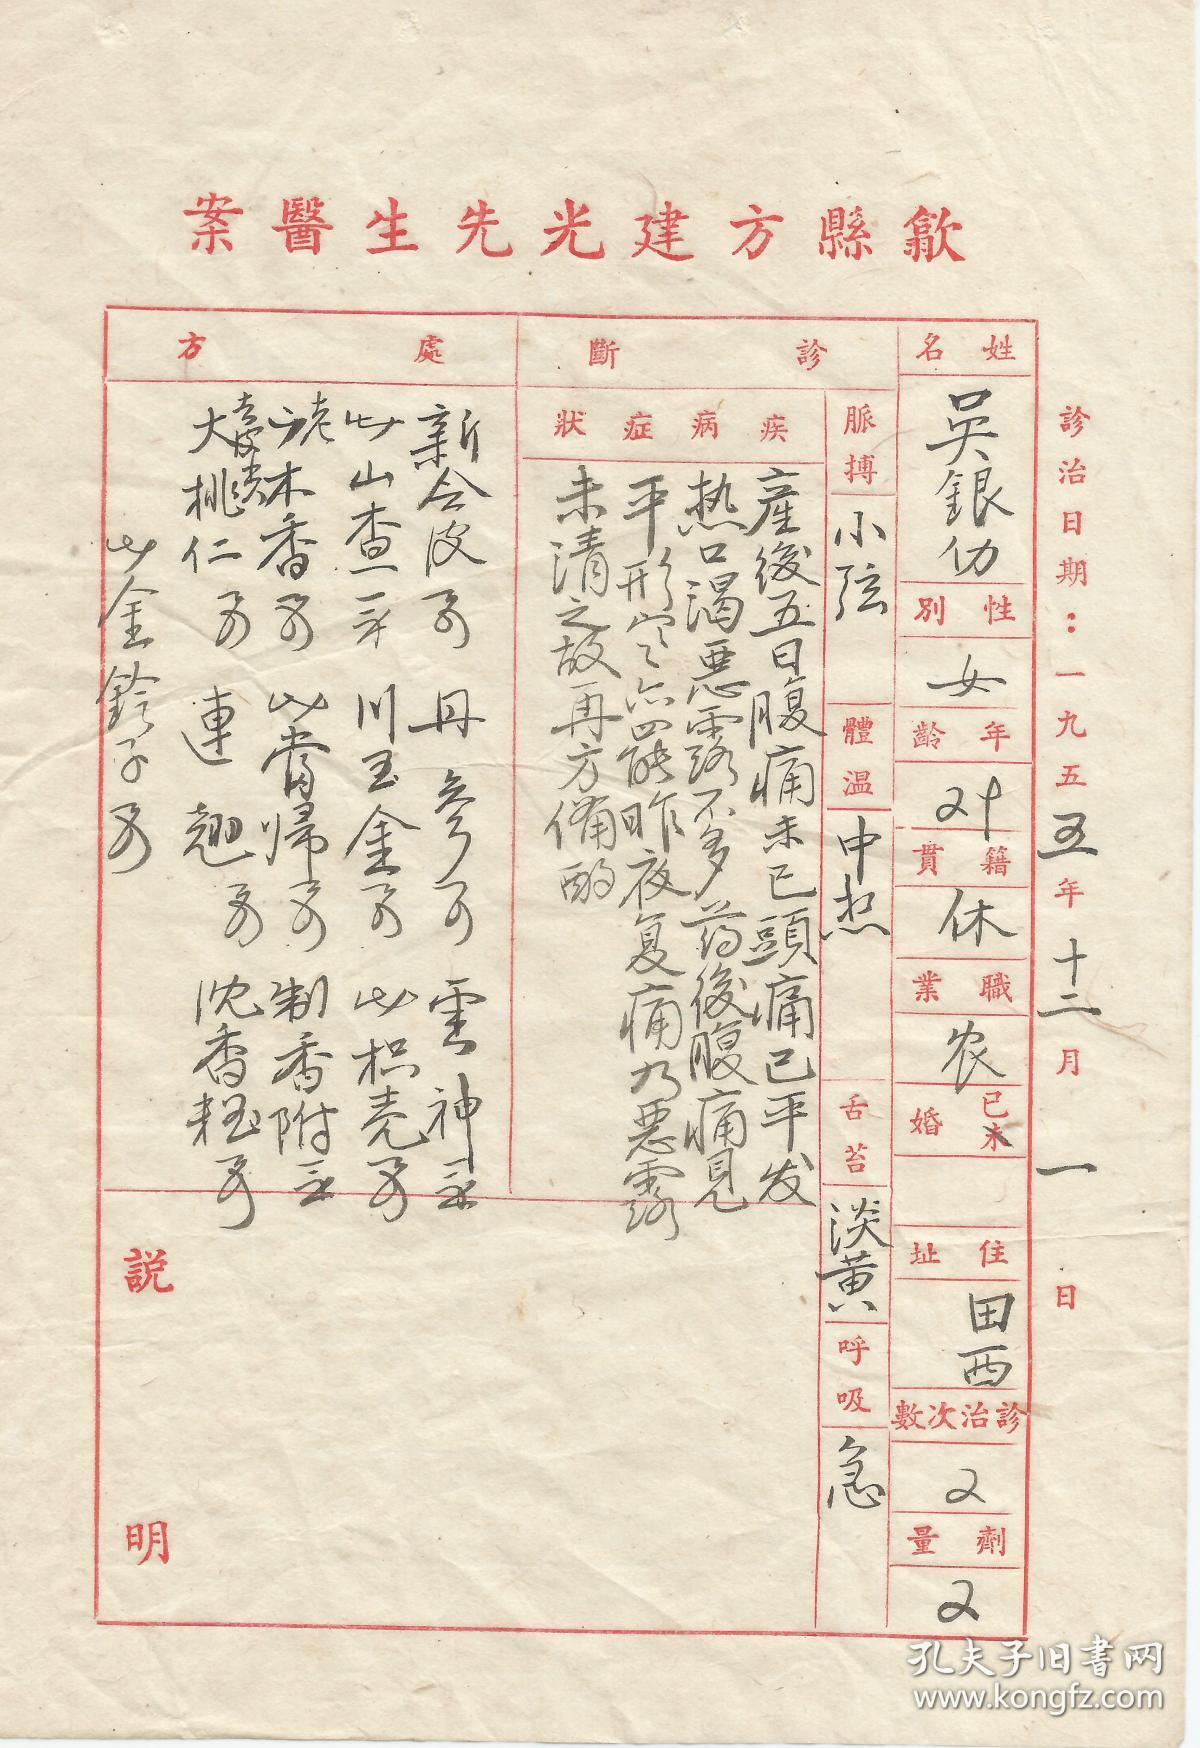 歙縣方建光先生醫案
診治日期：一九五五年十二月一日
姓名
吳銀仂
性別
女
年齡
籍貫
休
職業
农
已未婚
住址
田西
診治次數
2
劑量
2
診斷
脈搏
小弦
體溫
中熱
舌苔
淡黄
呼吸
急
疾病症狀
產後五日腹痛未已頭痛已平发
热口渴惡露不多药後腹痛見
平形寒亦罷昨夜复痛乃惡露
未清之故再方備酌
處方
新会皮 丹參 雲神
山查 川玉金 枳壳
木香 當歸 制香附
大桃仁 連翘 沈香
金鈴子
説明
孔夫子旧书网
www.kongfz.com